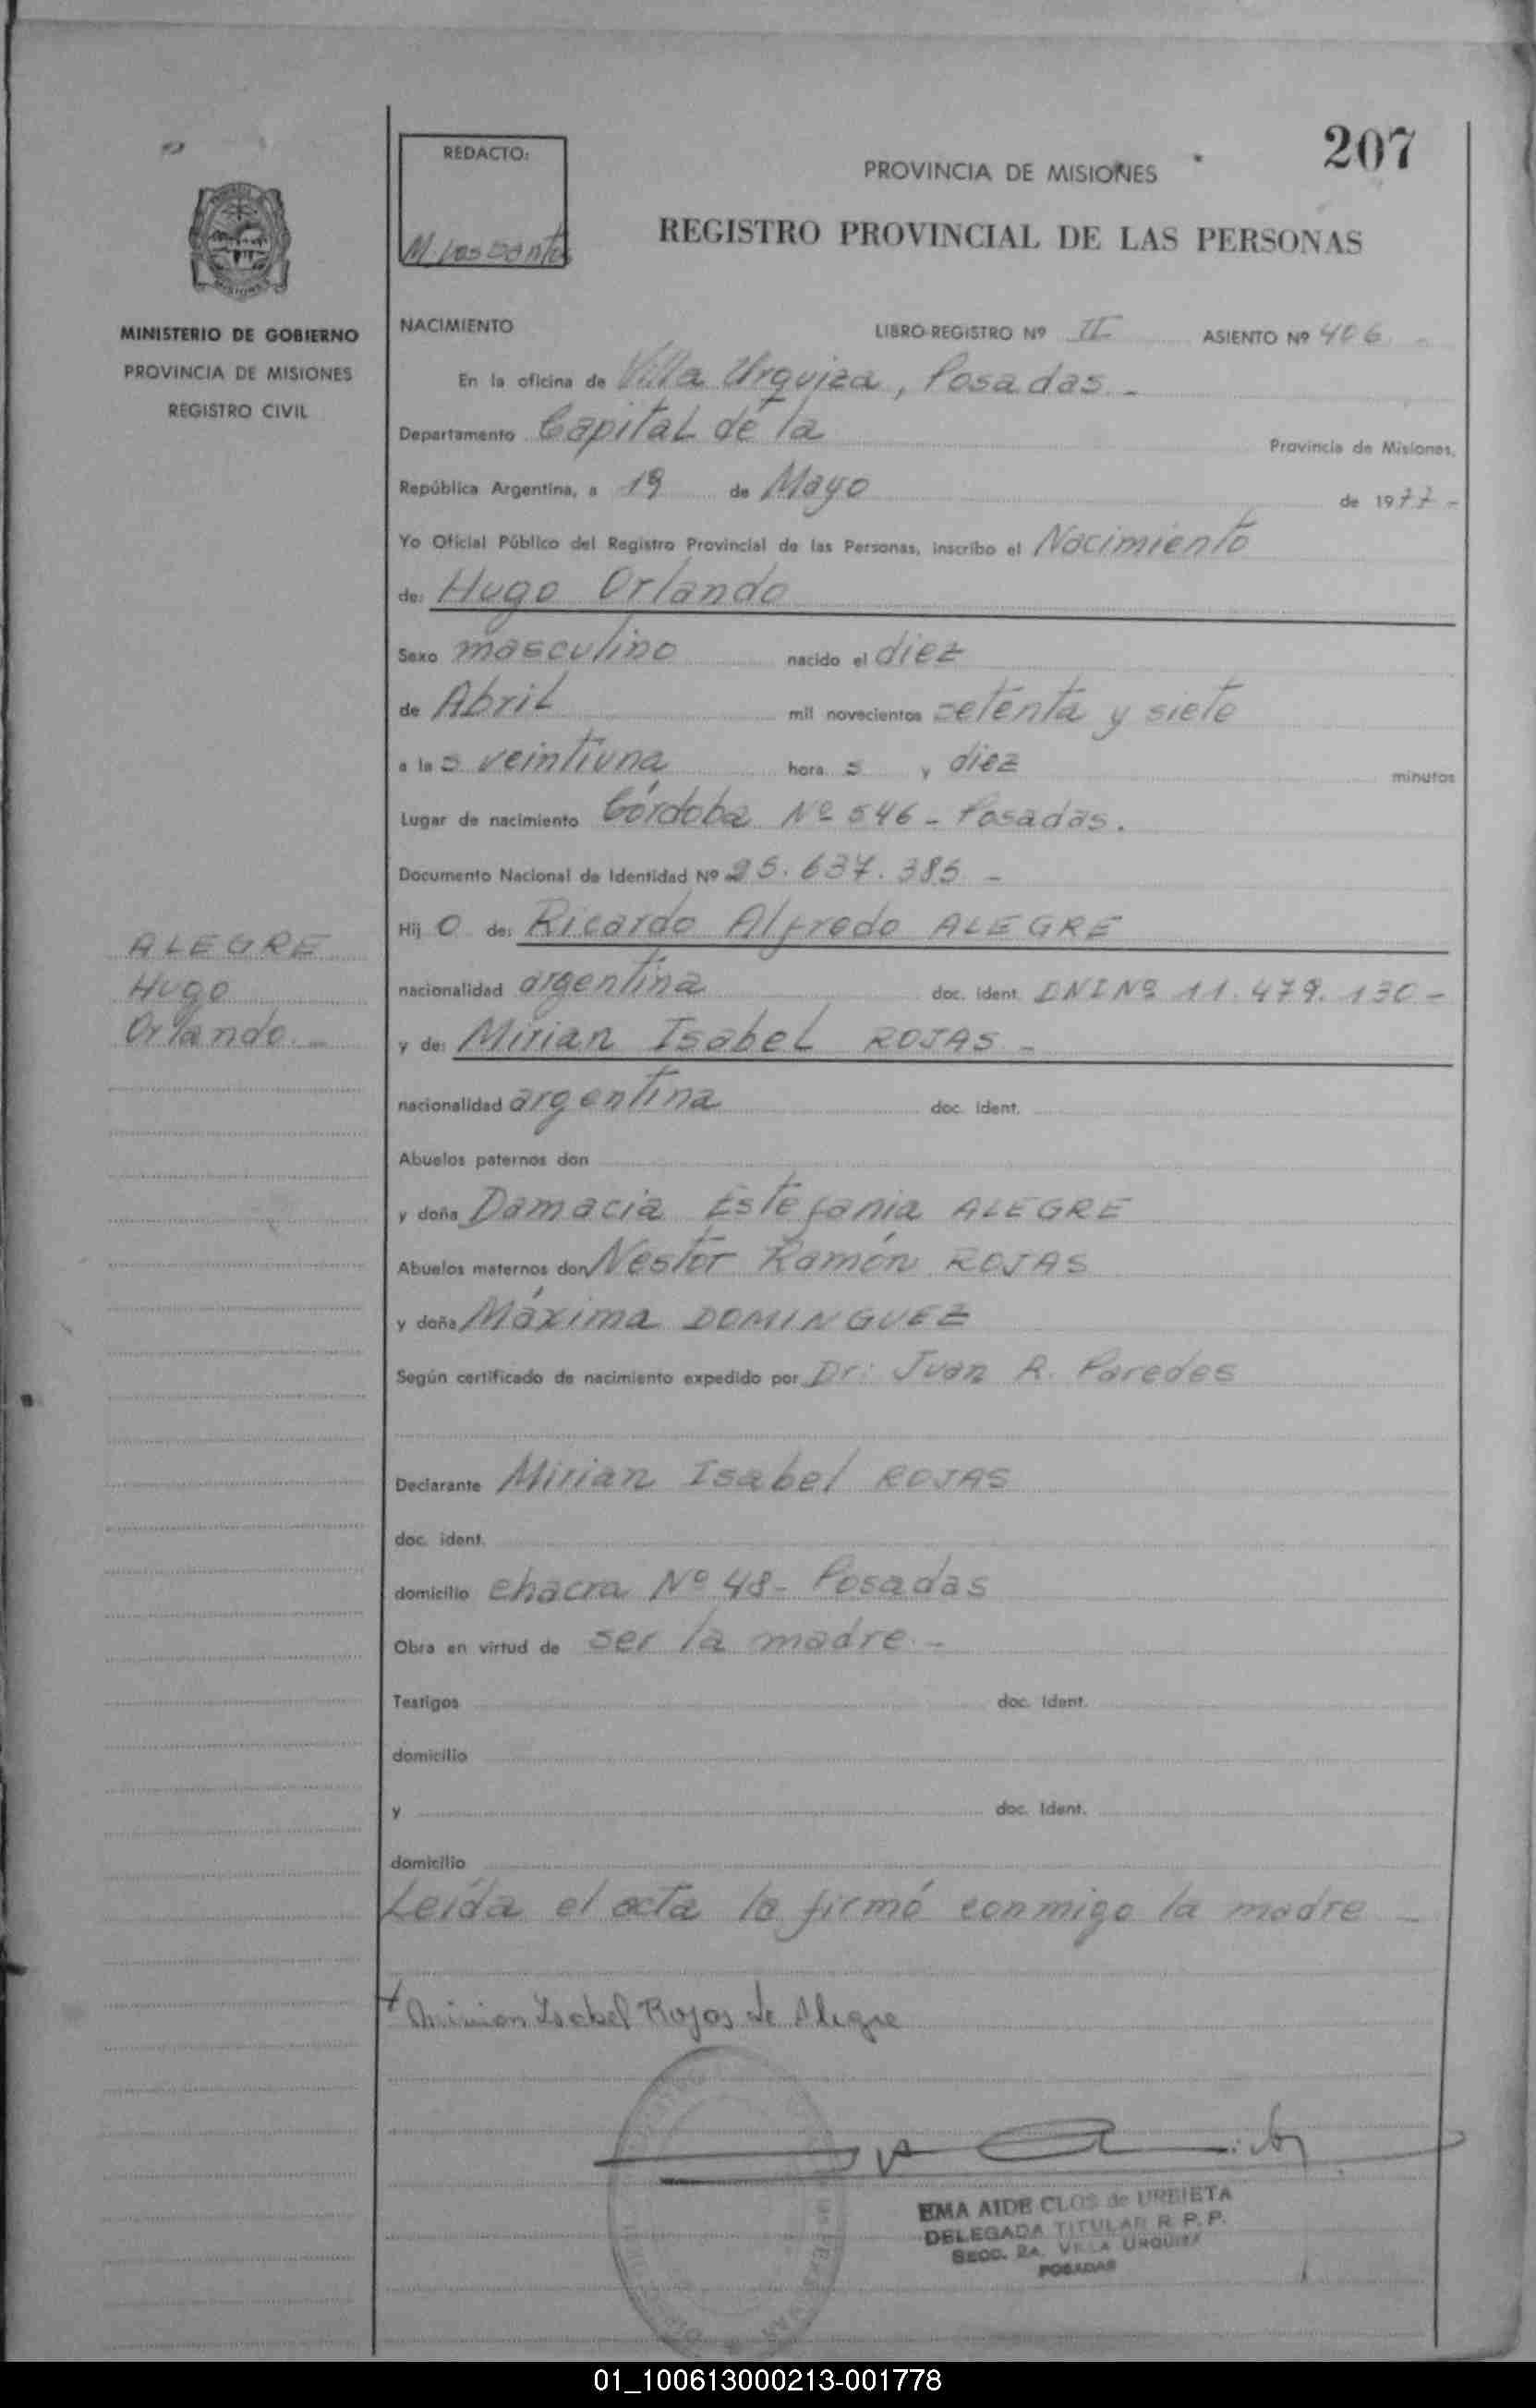 207
REDACTO:
PROVINCIA DE MISIONES
REGISTRO PROVINCIAL DE LAS PERSONAS
MINISTERIO DE GOBIERNO
PROVINCIA DE MISIONES
REGISTRO CIVIL
NACIMIENTO LIBRO-REGISTRO Nº II ASIENTO Nº 406 -
En la oficina de Villa Urquiza, Posadas -
Departamento Capital de la Provincia de Misiones,
República Argentina, a 19 de Mayo de 1977 -
Yo Oficial Público del Registro Provincial de las Personas, inscribo el Nacimiento
de: Hugo Orlando
Sexo masculino nacido el diez
de Abril mil novecientos setenta y siete
a las veintiuna hora s y diez minutos
Lugar de nacimiento Córdoba Nº 546 - Posadas.
Documento Nacional de Identidad Nº 25.637.385 -
Hij o de: Ricardo Alfredo ALEGRE
ALEGRE
Hugo
Orlando. -
nacionalidad argentina doc. ident. DNI Nº 11.479.130 -
y de: Mirian Isabel ROJAS -
nacionalidad argentina doc. ident.
Abuelos paternos don
y doña Damacia Estefania ALEGRE
Abuelos maternos don Nestor Ramón ROJAS
y doña Máxima DOMINGUEZ
Según certificado de nacimiento expedido por Dr: Juan R. Paredes
Declarante Mirian Isabel ROJAS
doc. ident.
domicilio chacra Nº 48 - Posadas
Obra en virtud de ser la madre. -
Testigos doc. ident.
domicilio
y doc. ident.
domicilio
Leída el acta la firmó conmigo la madre -
Mirian Isabel Rojas de Alegre
EMA AIDE CLOS de URBIETA
DELEGADA TITULAR R. P. P.
SECC. 2a. VILLA URQUIZA
POSADAS
01_100613000213-001778